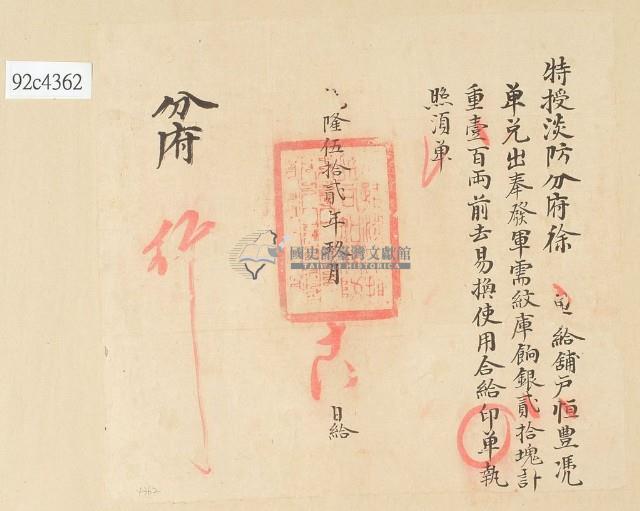 92c4362
特授淡防分府徐 給舖戶恒豐憑
单兌出奉發軍需紋庫餉銀貳拾塊計
重壹百両前去易換使用合給印单執
照須单
隆伍拾貳年 月
日給
分府
行
國史館臺灣文獻館
TAIWAN HISTORICA
4362